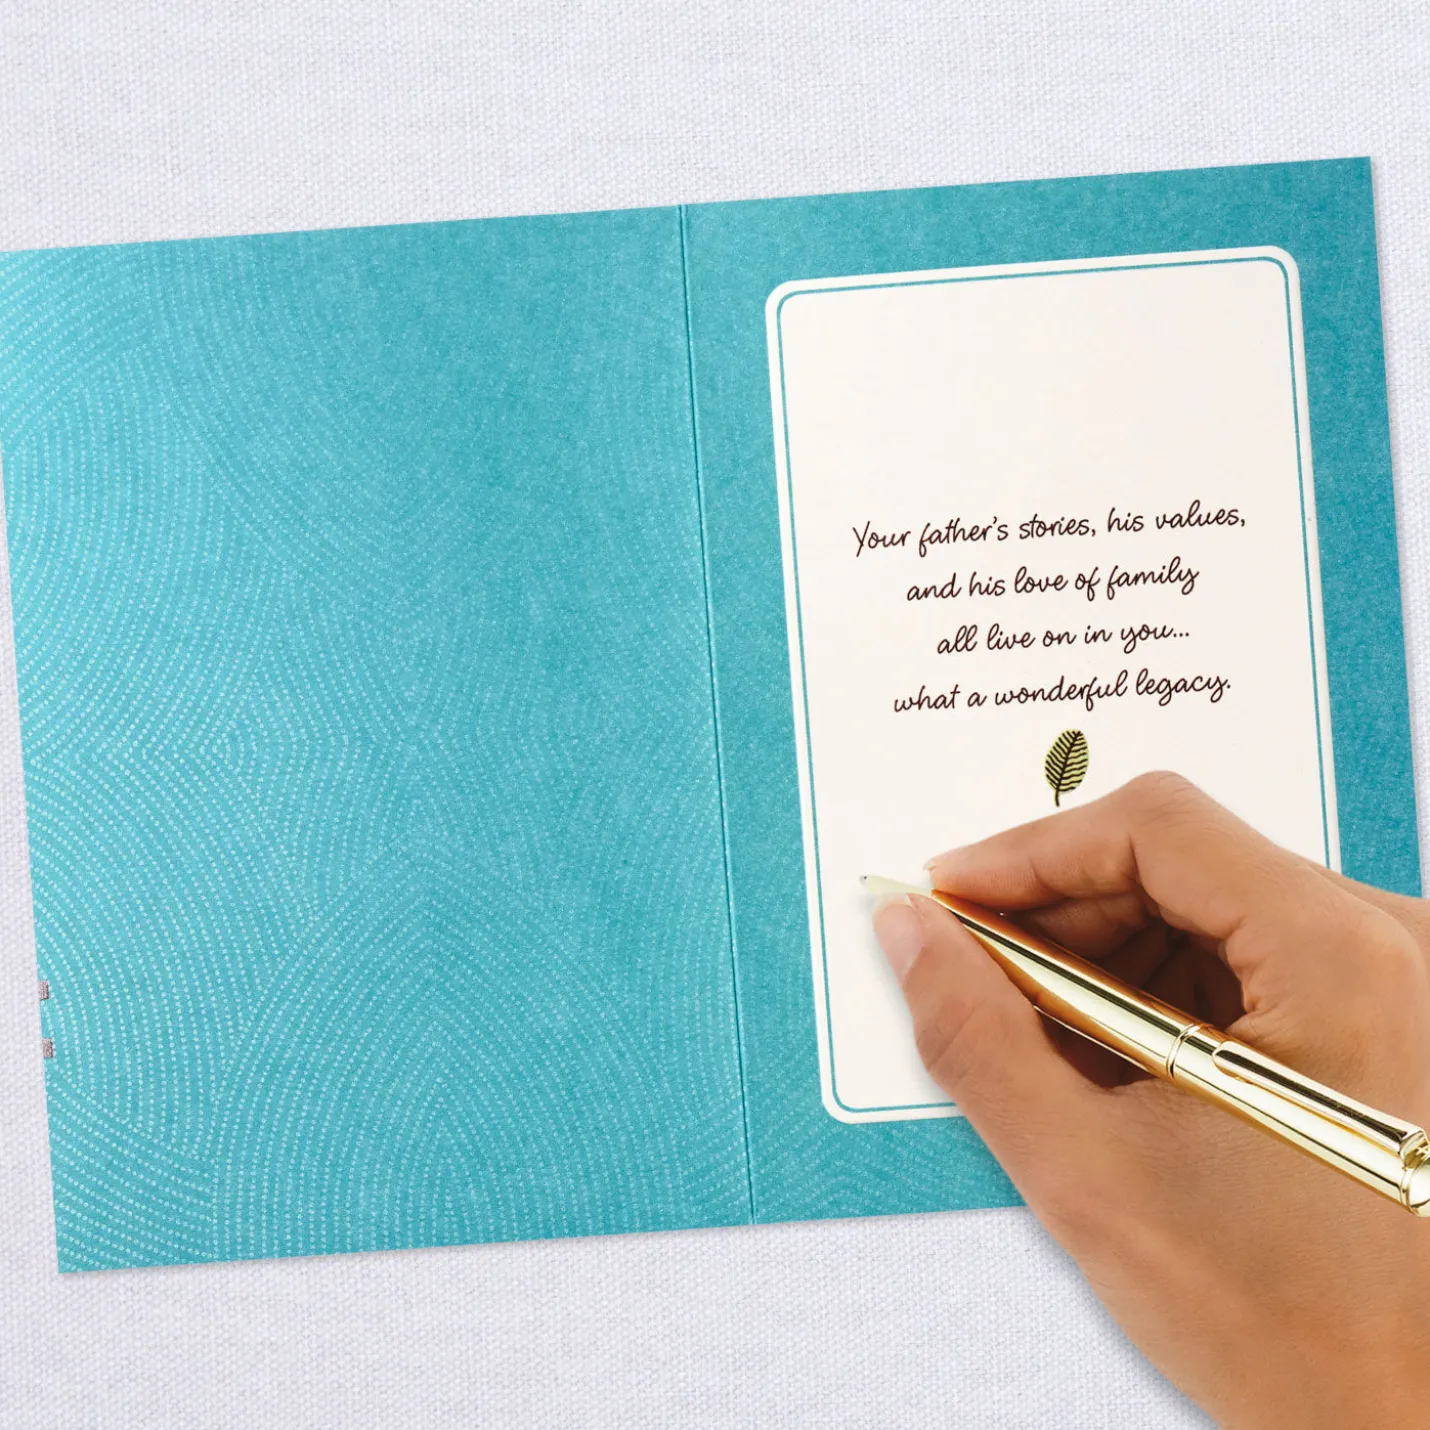 Your father's stories, his values,
and his love of family
all live on in you...
what a wonderful legacy.